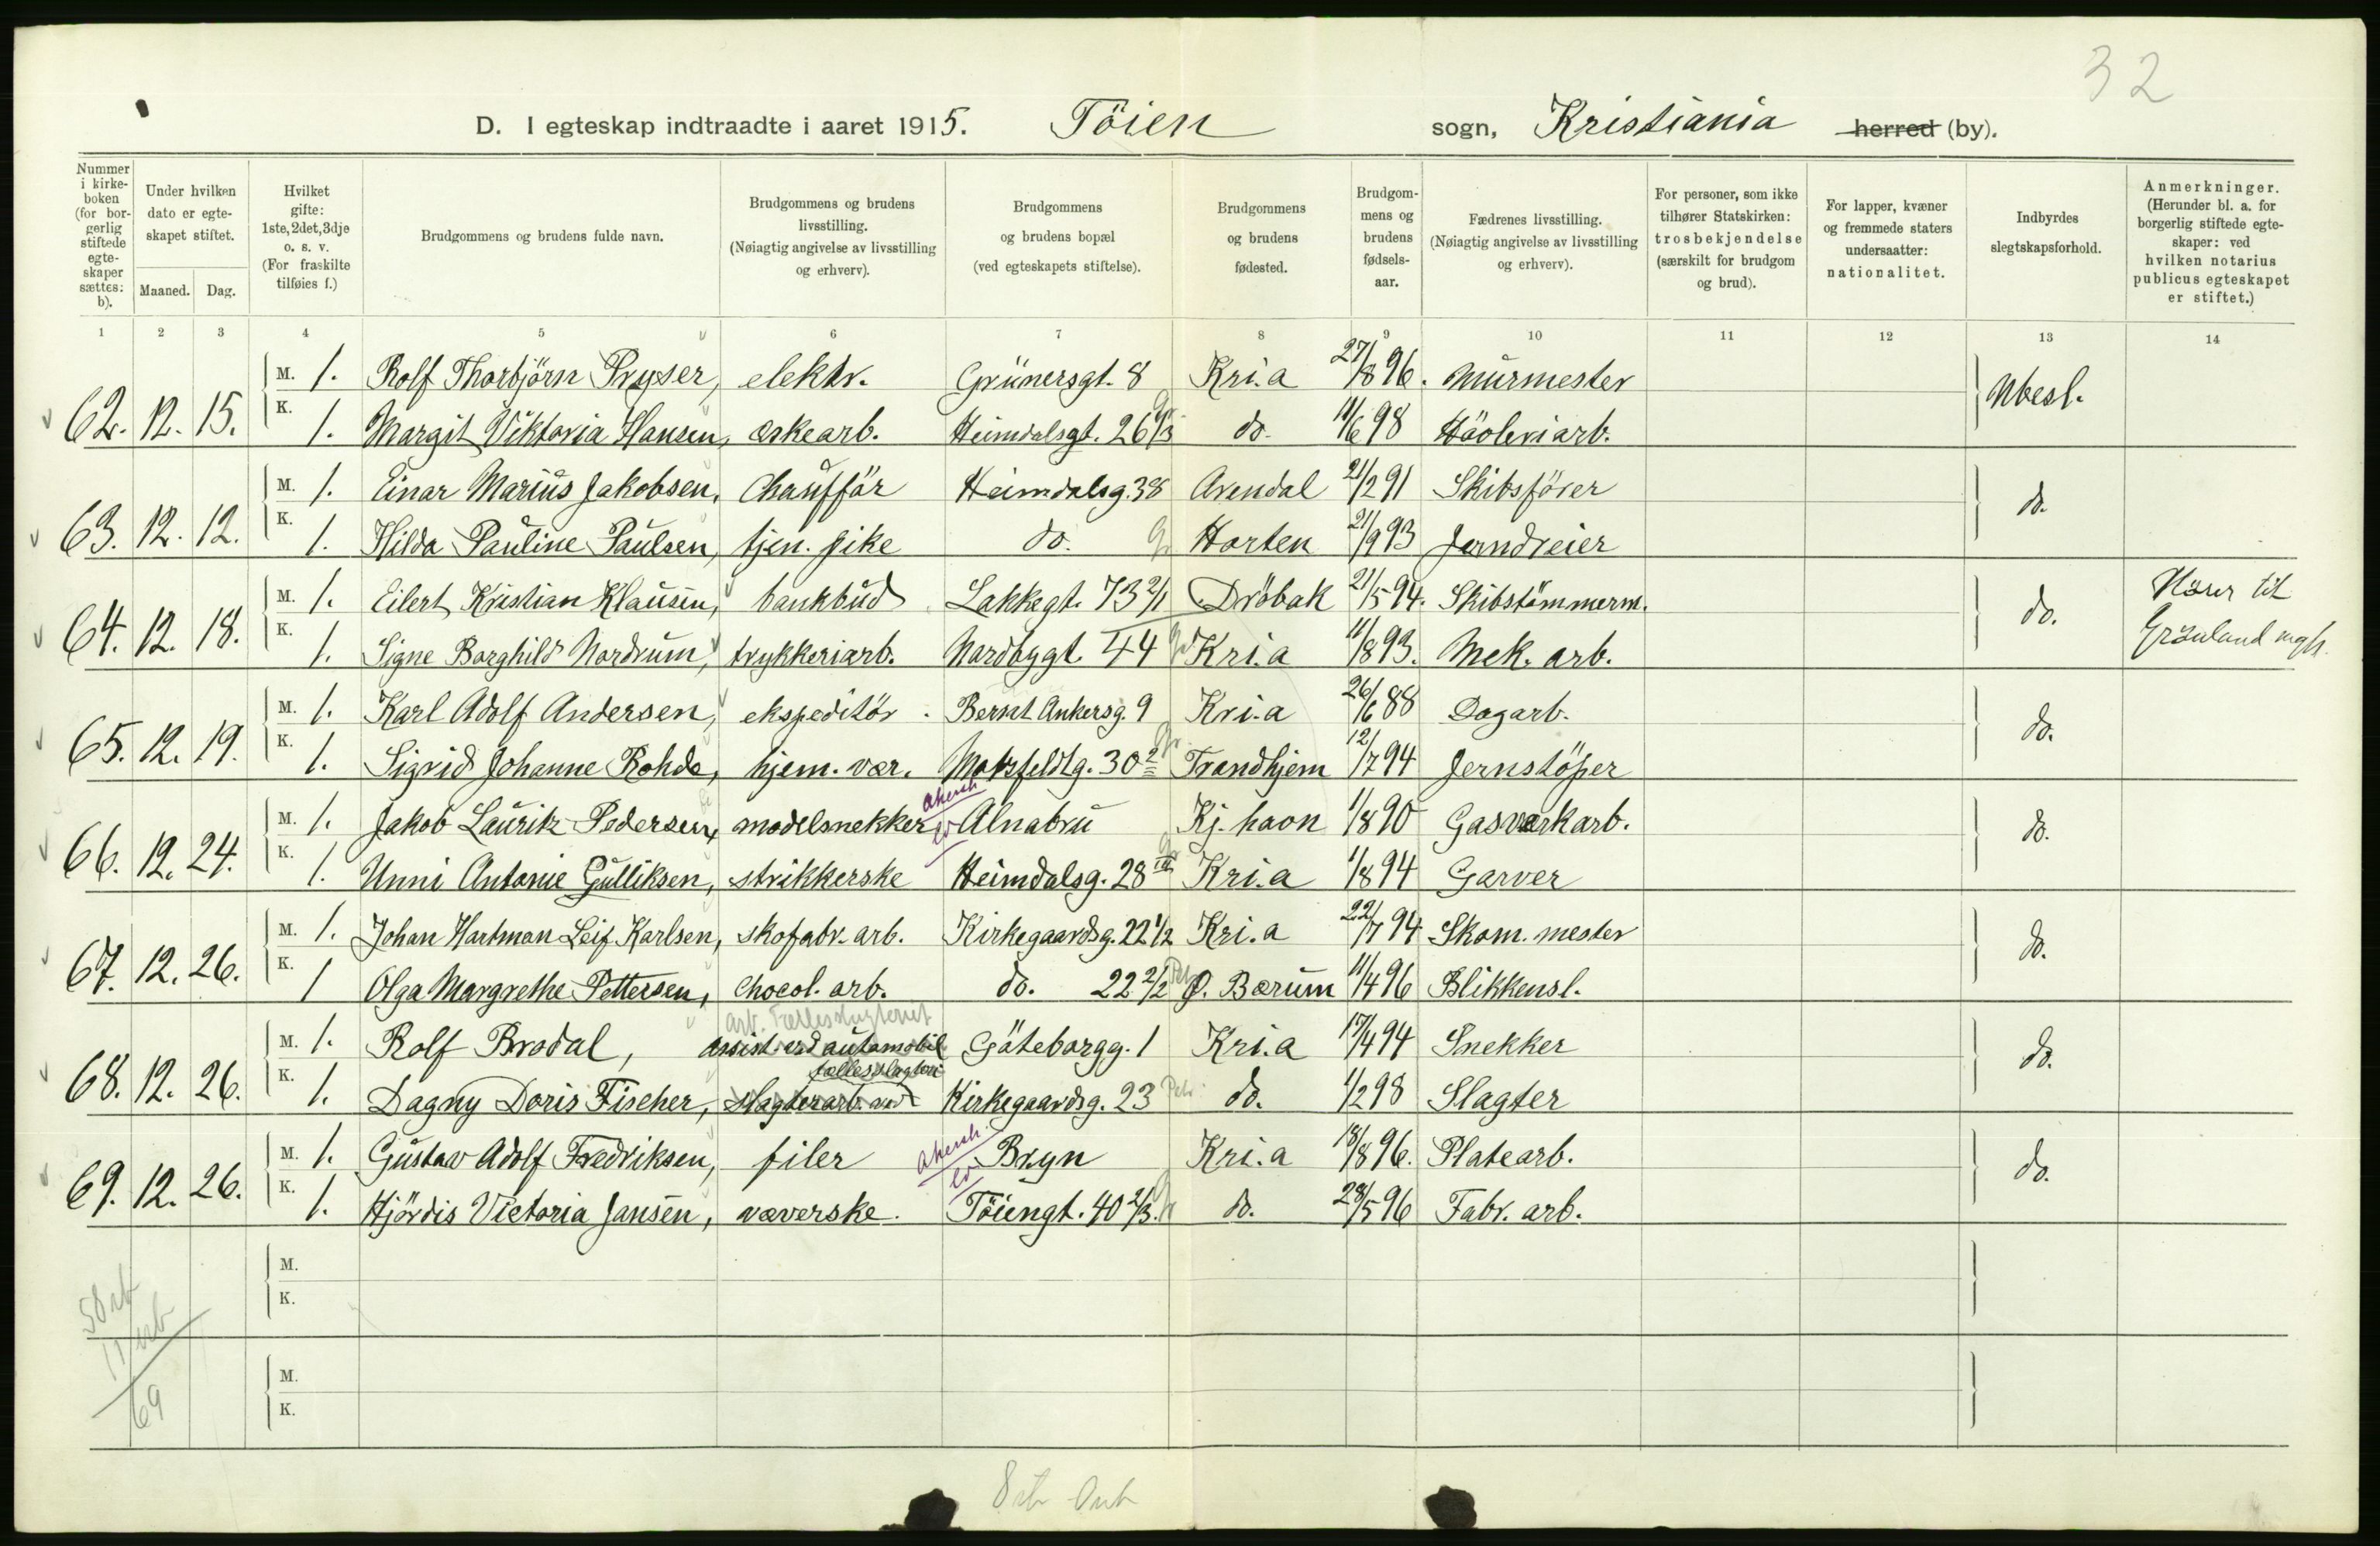 32
D. I egteskap indtraadte i aaret 1915. Töien sogn, Kristiania herred (by).
Nummer i kirkeboken (for borgerlig stiftede egteskaper sættes: b).
Under hvilken dato er egteskapet stiftet.
Maaned. Dag.
Hvilket gifte: 1ste, 2det, 3dje o. s. v. (For fraskilte tilføies f.)
Brudgommens og brudens fulde navn.
Brudgommens og brudens livsstilling. (Nøiagtig angivelse av livsstilling og erhverv).
Brudgommens og brudens bopæl (ved egteskapets stiftelse).
Brudgommens og brudens fødested.
Brudgommens og brudens fødselsaar.
Fædrenes livsstilling. (Nøiagtig angivelse av livsstilling og erhverv).
For personer, som ikke tilhører Statskirken: trosbekjendelse (særskilt for brudgom og brud).
For lapper, kvæner og fremmede staters undersaatter: nationalitet.
Indbyrdes slegtskapsforhold.
Anmerkninger. (Herunder bl. a. for borgerlig stiftede egteskaper: ved hvilken notarius publicus egteskapet er stiftet.)
1 2 3 4 5 6 7 8 9 10 11 12 13 14
M. 1. Rolf Thorbjörn Pryser, elektr. Grünersgt. 8 Kri.a 27/8 96. Murmester
62. 12. 15. Ubesl.
K. 1. Margit Viktoria Hansen, æskearb. Heimdalsgt. 26 do. 11/6 98
M. 1. Einar Marius Jakobsen, Chaufför Heimdalsg. 38 Arendal 21/2 91 Skibsförer
63. 12. 12. do.
K. 1. Hilda Pauline Paulsen, tjen. pike do. Gr Horten 21/9 93 Jerndreier
M. 1. Eilert Kristian Klausen, bankbud Lakkegt. 73 2/1 Dröbak 21/5 94. Skibstömmerm.
64. 12. 18. do. Hörer til Grönland mgh.
K. 1. Signe Borghild Nordrum, trykkeriarb. Nordbygt. 44 Gr Kri.a 11/8 93. Mek. arb.
M. 1. Karl Adolf Andersen, ekspeditör. Bernt Ankersg. 9 Kri.a 26/6 88 Dagarb.
65. 12. 19. do.
K. 1. Sigrid Johanne Rohde, hjem. vær. Motzfeldtg. 30 2 Gr. Trondhjem 12/7 94 Jernstöper
M. 1. Jakob Lauritz Pedersen, modelsnekker Akersh. Alnabru Kj. havn 1/8 90 Gasverkarb.
66. 12. 24. do.
K. 1. Unni Antonie Gulliksen, strikkerske Heimdalsg. 28 III Gr Kri.a 1/8 94 Garver
M. 1. Johan Hartman Leif Karlsen, skofabr. arb. Kirkegaardsg. 22 1/2 Kri.a 22/7 94 Skom. mester
67. 12. 26. do.
K. 1 Olga Margrethe Pettersen, Chocol. arb. do. 22 2/2 Ø. Bærum 11/4 96 Blikkensl.
arb. Fællesslagteriet
M. 1. Rolf Brodal, assist. ved automobil Göteborgg. 1 Kri.a 17/4 94 Snekker
68. 12. 26. do.
fællesslagteri
K. 1. Dagny Doris Fischer, slagterarb. ved Kirkegaardsg. 23 Petr do. 1/2 98 Slagter
M. 1. Gustav Adolf Fredriksen, filer Akersh. Bryn Kri.a 18/8 96. Platearb.
69. 12. 26. do.
K. 1. Hjördis Victoria Jansen, væverske. Töiengt. 40 2/3. do. 28/5 96 Fabr. arb.
M.
K.
M.
K.
69